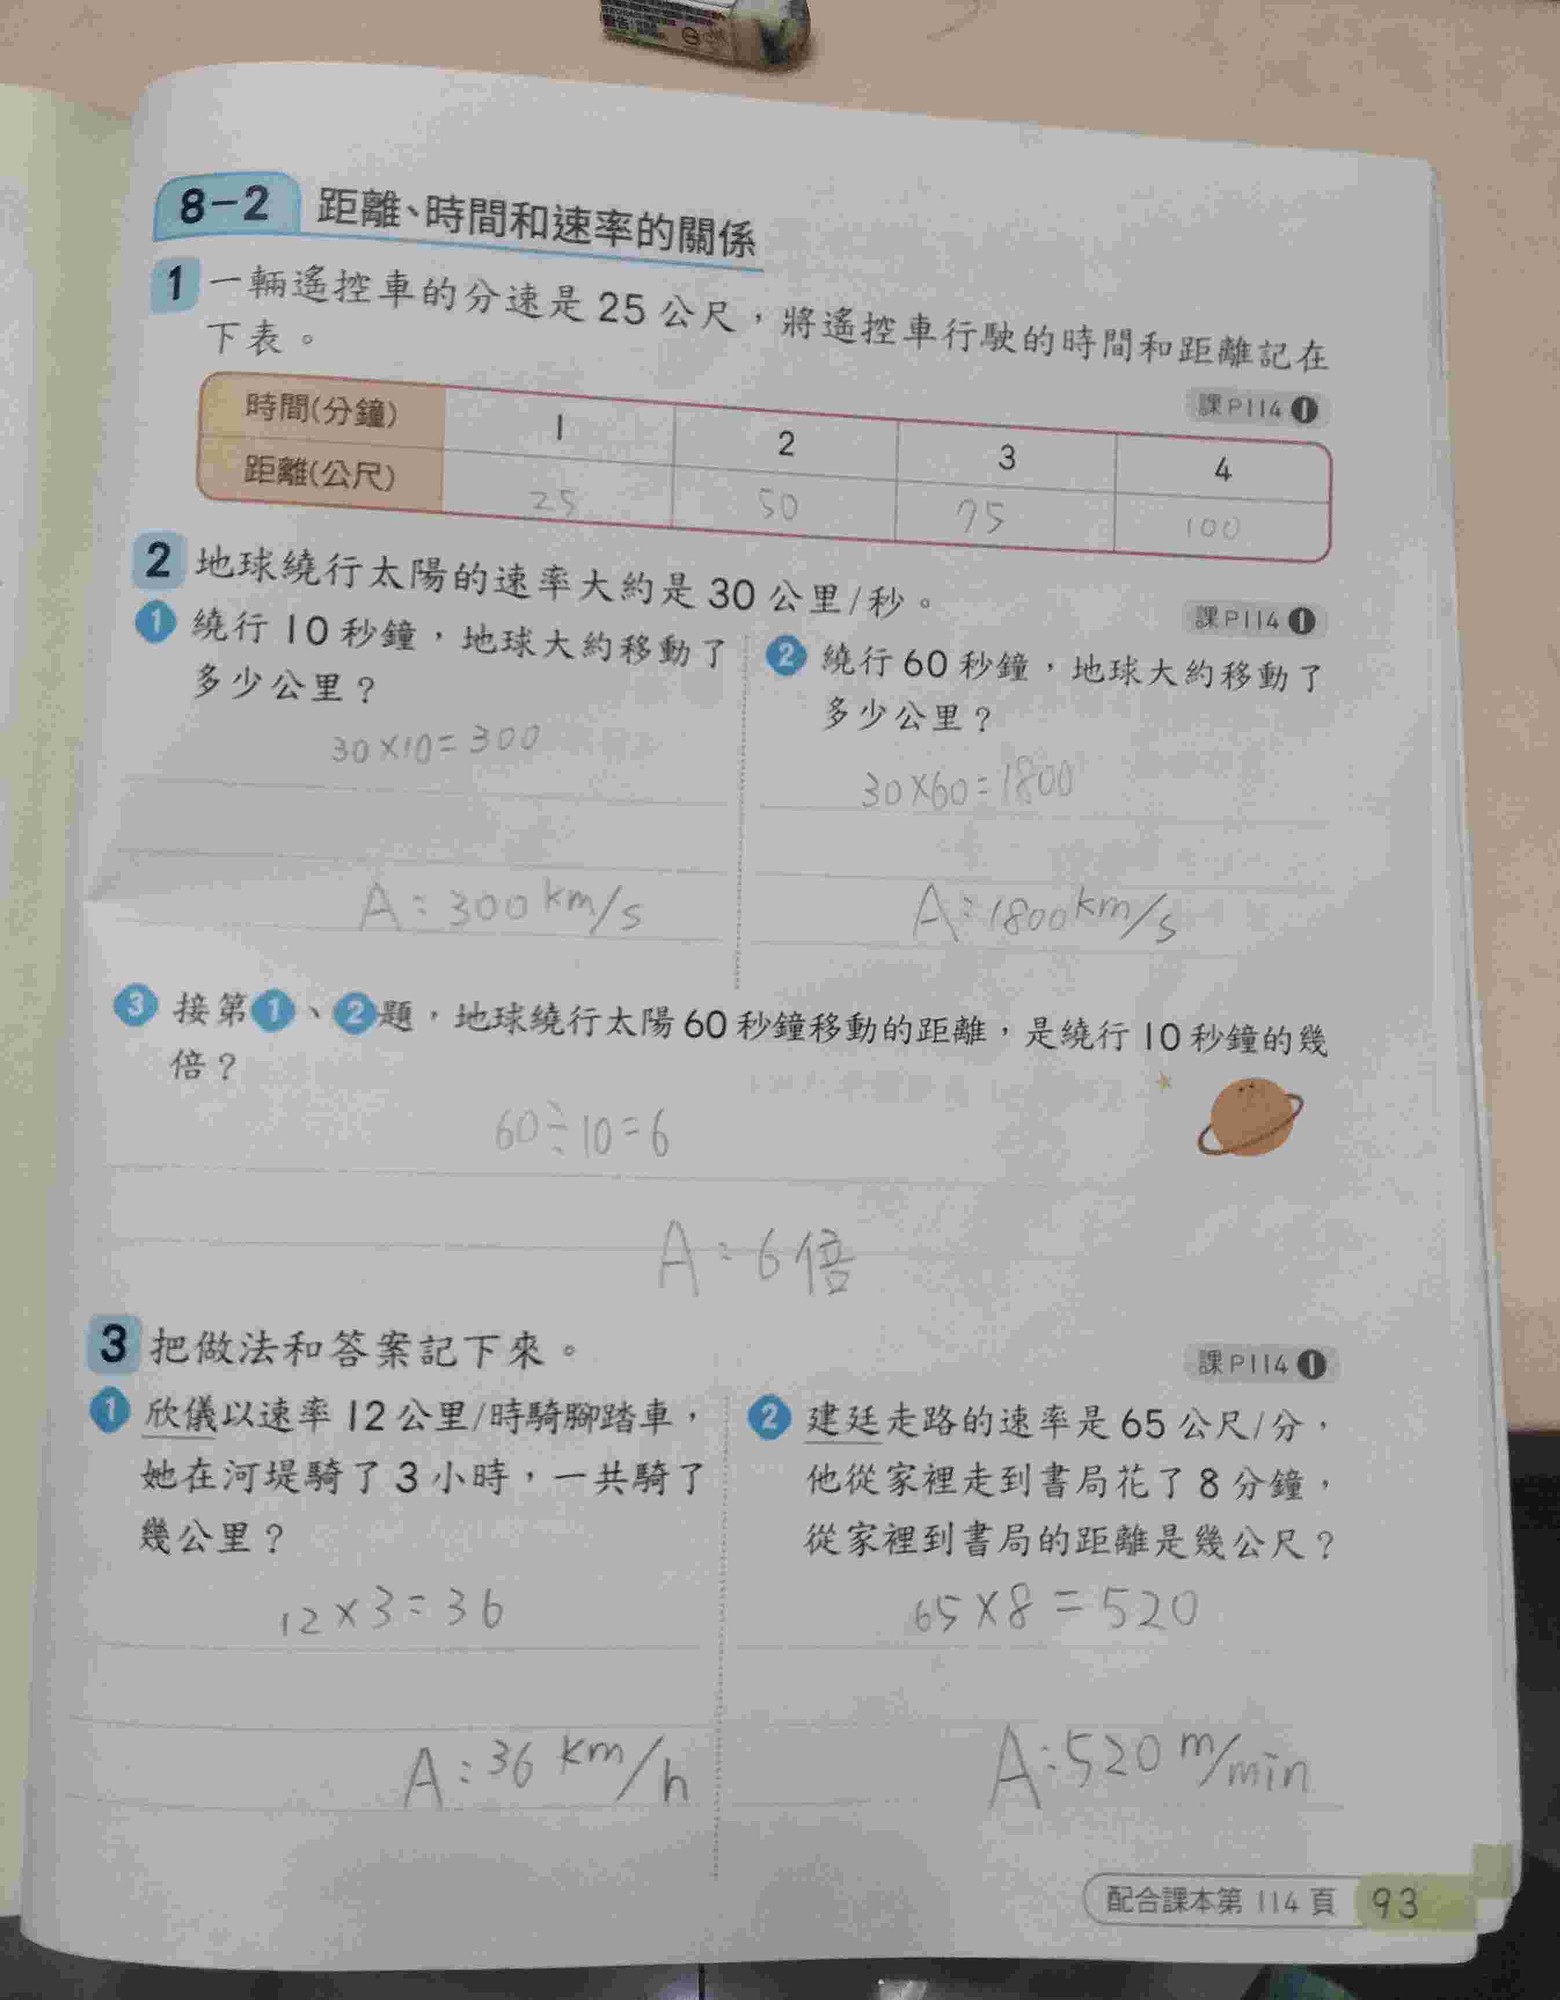 8-2 距離、時間和速率的關係
1 一輛遙控車的分速是25公尺,將遙控車行駛的時間和距離記在
下表。
課P114 1
時間(分鐘) 1 2 3 4
距離(公尺) 25 50 75 100
2 地球繞行太陽的速率大約是30公里/秒。
課P114 1
1 繞行10秒鐘,地球大約移動了
多少公里?
30×10=300
A:300km/s
2 繞行60秒鐘,地球大約移動了
多少公里?
30×60=1800
A:1800km/s
3 接第1、2題,地球繞行太陽60秒鐘移動的距離,是繞行10秒鐘的幾
倍?
60÷10=6
A:6倍
3 把做法和答案記下來。
課P114 1
1 欣儀以速率12公里/時騎腳踏車,
她在河堤騎了3小時,一共騎了
幾公里?
12×3=36
A:36km/h
2 建廷走路的速率是65公尺/分,
他從家裡走到書局花了8分鐘,
從家裡到書局的距離是幾公尺?
65×8=520
A:520m/min
配合課本第114頁 93